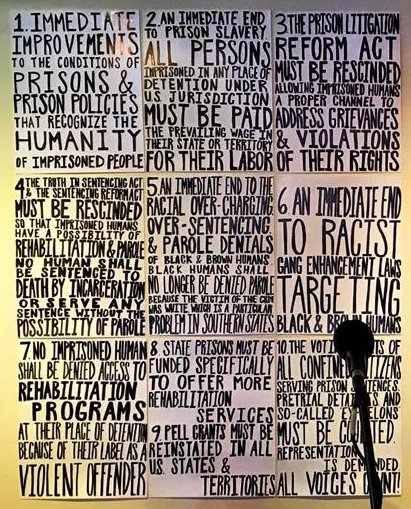 1. IMMEDIATE
IMPROVEMENTS
TO THE CONDITIONS OF
PRISONS &
PRISON POLICIES
THAT RECOGNIZE THE
HUMANITY
OF IMPRISONED PEOPLE
2. AN IMMEDIATE END
TO PRISON SLAVERY.
ALL PERSONS
IMPRISONED IN ANY PLACE OF
DETENTION UNDER
U.S. JURISDICTION
MUST BE PAID
THE PREVAILING WAGE IN
THEIR STATE OR TERRITORY
FOR THEIR LABOR
3. THE PRISON LITIGATION
REFORM ACT
MUST BE RESCINDED
ALLOWING IMPRISONED HUMANS
A PROPER CHANNEL TO
ADDRESS GRIEVANCES
& VIOLATIONS
OF THEIR RIGHTS
4. THE TRUTH IN SENTENCING ACT
& THE SENTENCING REFORM ACT
MUST BE RESCINDED
SO THAT IMPRISONED HUMANS
HAVE A POSSIBILITY OF
REHABILITATION & PAROLE
NO HUMAN SHALL
BE SENTENCED TO
DEATH BY INCARCERATION
OR SERVE ANY
SENTENCE WITHOUT THE
POSSIBILITY OF PAROLE
5. AN IMMEDIATE END TO THE
RACIAL OVER-CHARGING,
OVER-SENTENCING,
& PAROLE DENIALS
OF BLACK & BROWN HUMANS.
BLACK HUMANS SHALL
NO LONGER BE DENIED PAROLE
BECAUSE THE VICTIM OF THE CRIME
WAS WHITE, WHICH IS A PARTICULAR
PROBLEM IN SOUTHERN STATES
6. AN IMMEDIATE END
TO RACIST
GANG ENHANCEMENT LAWS
TARGETING
BLACK & BROWN HUMANS
7. NO IMPRISONED HUMAN
SHALL BE DENIED ACCESS TO
REHABILITATION
PROGRAMS
AT THEIR PLACE OF DETENTION
BECAUSE OF THEIR LABEL AS A
VIOLENT OFFENDER
8. STATE PRISONS MUST BE
FUNDED SPECIFICALLY
TO OFFER MORE
REHABILITATION
SERVICES
9. PELL GRANTS MUST BE
REINSTATED IN ALL
U.S. STATES &
TERRITORIES
10. THE VOTING OF
ALL CONFINED CITIZENS
SERVING PRISON SENTENCES,
PRETRIAL DETAINEES, AND
SO-CALLED
MUST BE COUNTED.
REPRESENTATION
IS DEMANDED
ALL VOICES COUNT!